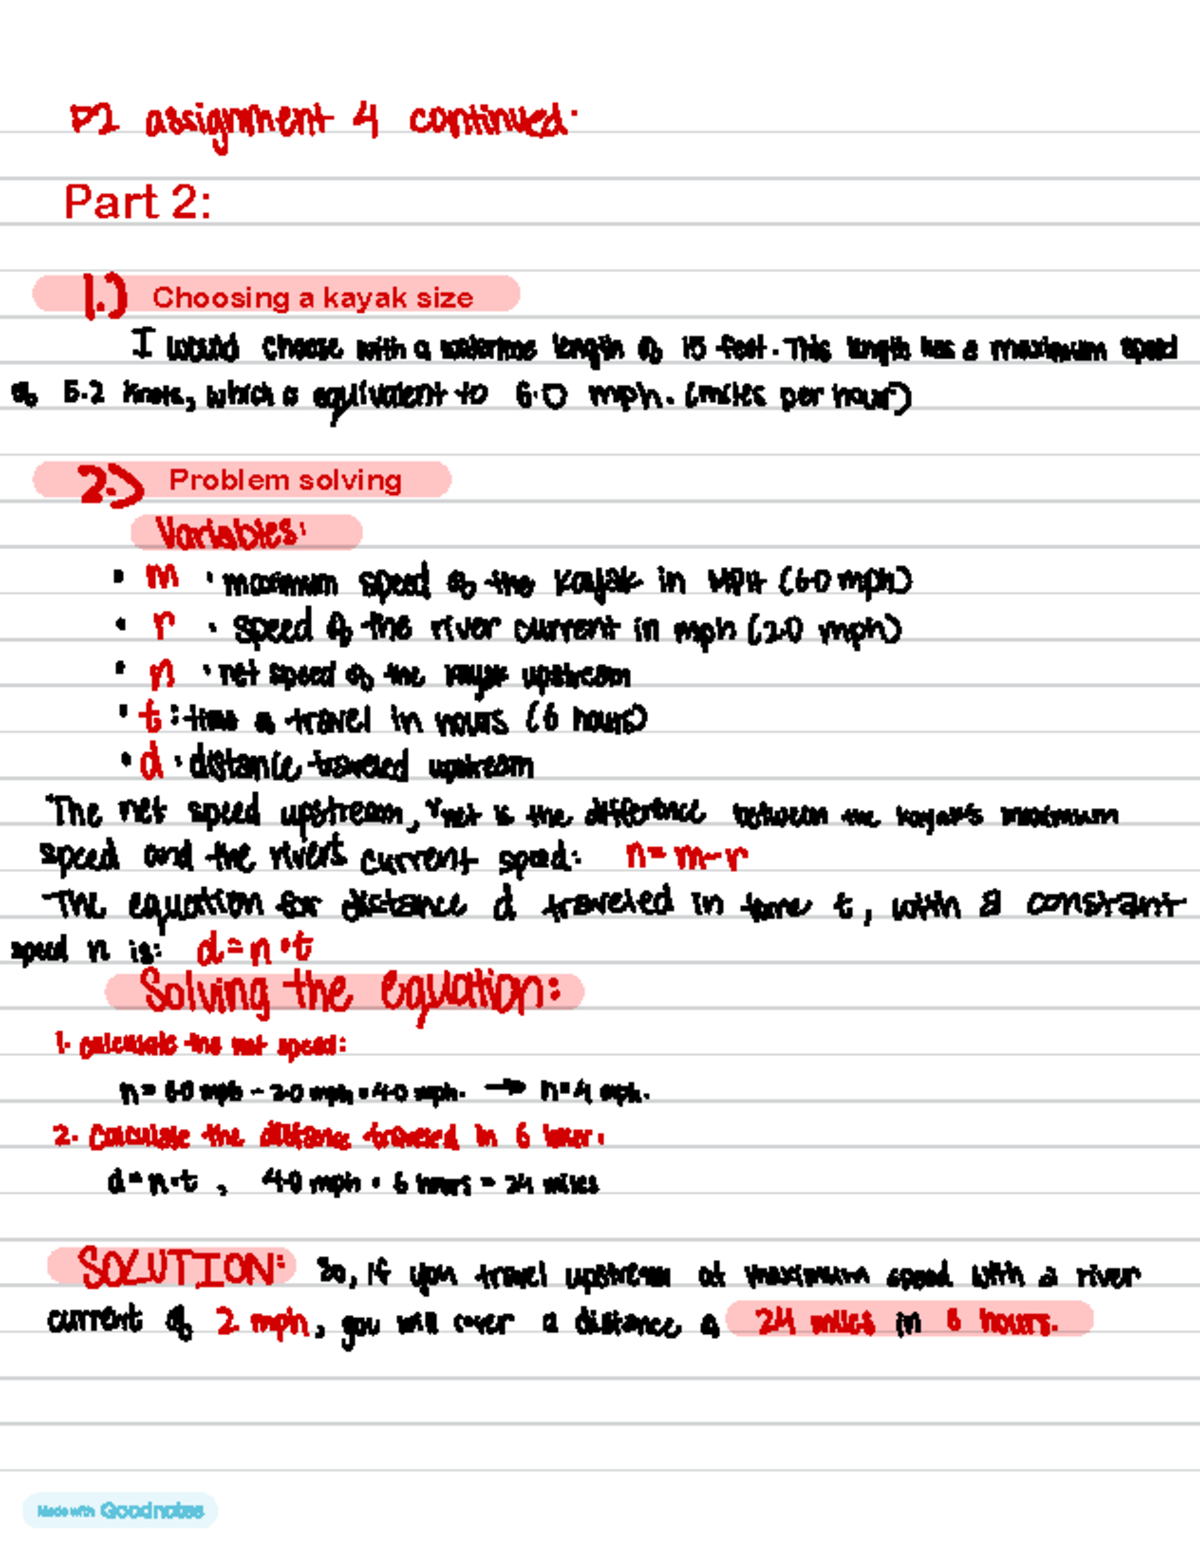 P2 assignment 4 continued:
Part 2:
1.) Choosing a kayak size
I would choose with a waterline length of 15 feet. This length has a maximum speed
of 5.2 knots, which is equivalent to 6.0 mph. (miles per hour)
2.) Problem solving
Variables:
• m : maximum speed of the kayak in MPH (6.0 mph)
• r : speed of the river current in mph (2.0 mph)
• n : net speed of the kayak upstream
• t : time of travel in hours (6 hours)
• d : distance traveled upstream
The net speed upstream, net is the difference between the kayak's maximum
speed and the river's current speed: n = m - r
The equation for distance d traveled in time t, with a constant
speed n is: d = n • t
Solving the equation:
1. calculate the net speed:
n = 6.0 mph - 2.0 mph = 4.0 mph. → n = 4 mph.
2. Calculate the distance traveled in 6 hours:
d = n • t , 4.0 mph • 6 hours = 24 miles
SOLUTION: So, if you travel upstream at maximum speed with a river
current of 2 mph, you will cover a distance of 24 miles in 6 hours.
Made with Goodnotes